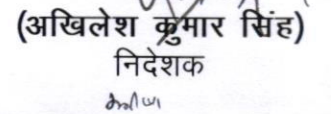 (अखिलेश कुमार सिंह)
निदेशक